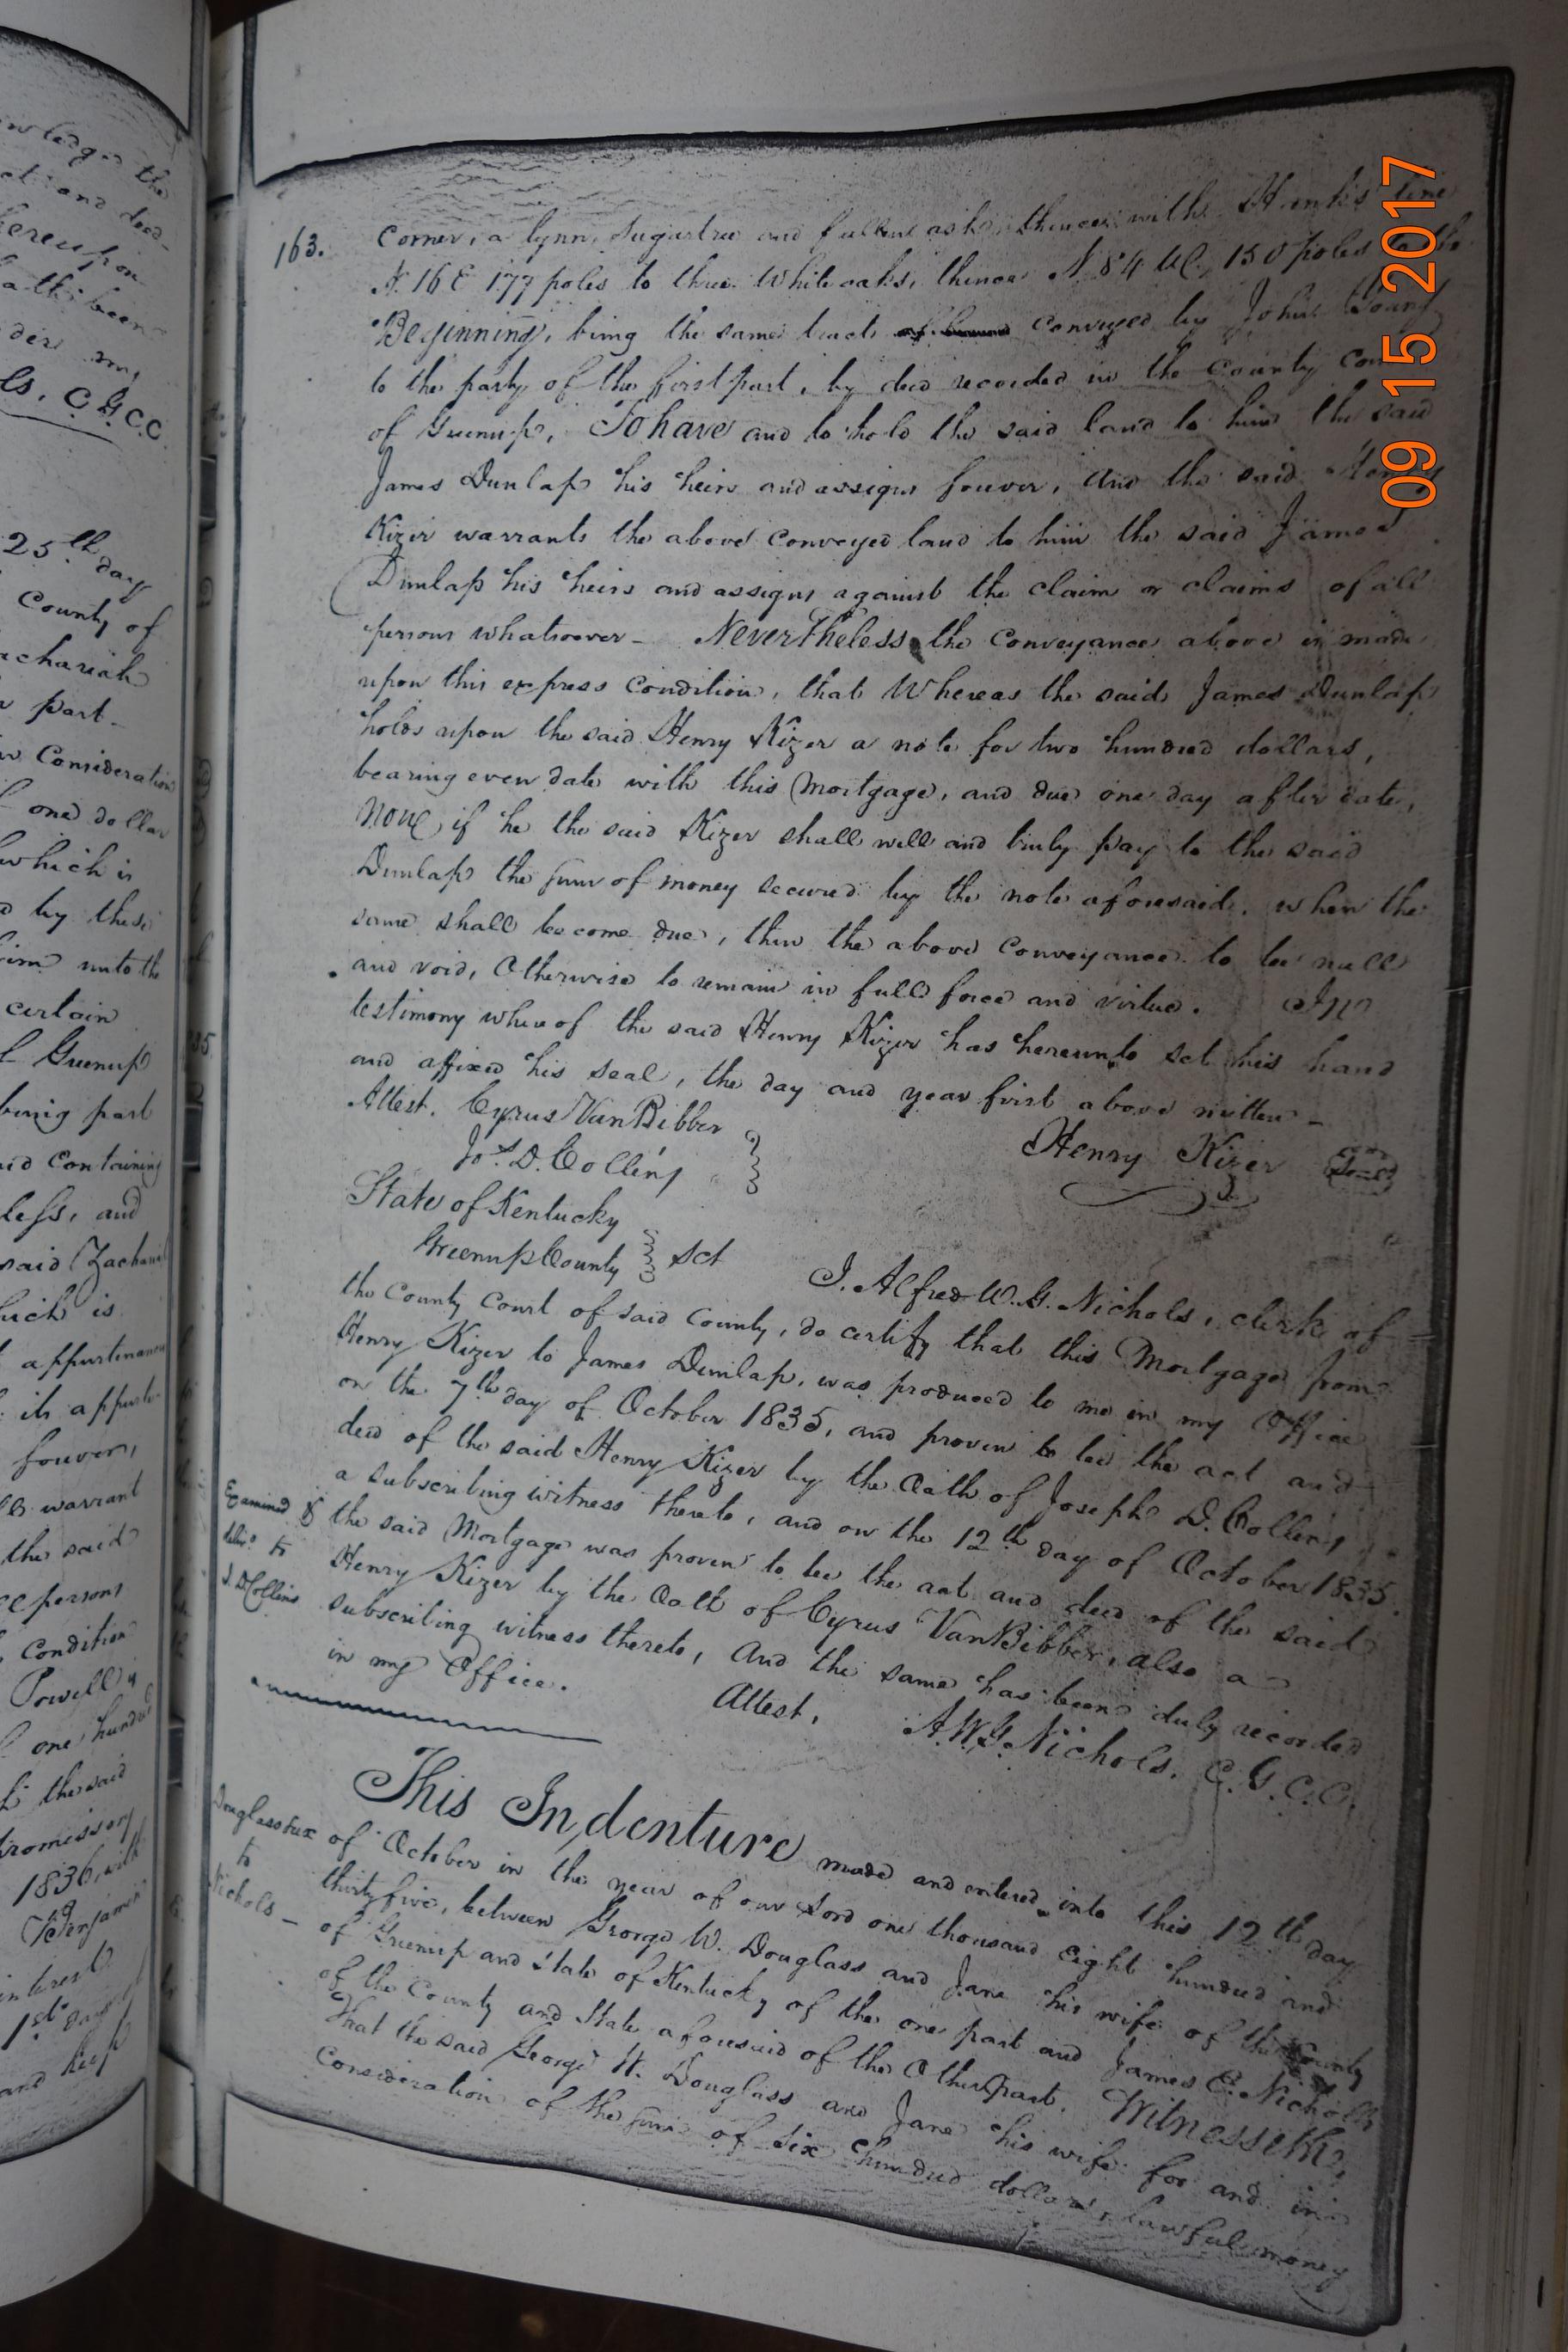 163.
corner, a lynn, Sugartree and fallen ash, thence with Hunt's line
N. 16 E 177 poles to three White oaks, thence N. 84 W. 150 poles to the
Beginning, being the same tract conveyed by John Young
to the party of the first part, by deed recorded in the County
of Greenup, To have and to hold the said land to him the said
James Dunlap his heirs and assigns forever, And the said Henry
Kizer warrants the above conveyed land to him the said James
Dunlap his heirs and assigns against the claim or claims of all
persons whatsoever - Nevertheless the conveyance above is made
upon this express condition, that Whereas the said James Dunlap
holds upon the said Henry Kizer a note for two hundred dollars,
bearing even date with this Mortgage, and due one day after date,
Now, if he the said Kizer shall well and truly pay to the said
Dunlap the sum of money secured by the note aforesaid, when the
same shall become due, then the above conveyance to be null
and void, Otherwise to remain in full force and virtue. In
testimony whereof the said Henry Kizer has hereunto set his hand
and affixed his seal, the day and year first above written -
Attest. Cyrus VanBibber
Jos. D. Collins
Henry Kizer Seal
State of Kentucky
Greenup County } Sct
I. Alfred W. G. Nichols, clerk of
the County Court of said County, do certify that this Mortgage from
Henry Kizer to James Dunlap, was produced to me in my Office
on the 7th day of October 1835, and proven to be the act and
deed of the said Henry Kizer by the Oath of Joseph D. Collins,
a subscribing witness thereto, and on the 12th day of October 1835.
the said Mortgage was proven to be the act and deed of the said
Henry Kizer by the Oath of Cyrus VanBibber, also a
subscribing witness thereto, and the same has been duly recorded
in my Office.
Examined &
to
J. D Collins
Attest,
A. W. G. Nichols. C. G. C. C.
This Indenture made and entered into this 12th day
of October in the year of our Lord one thousand eight hundred and
thirty five, between George W. Douglass and Jane his wife of the County
of Greenup and State of Kentucky of the one part and James E. Nicholls
of the County and State aforesaid of the Other part. Witnesseth,
That the said George W. Douglass and Jane his wife for and in
consideration of the sum of six hundred dollars, lawful money
Douglass & ux
to
Nichols -
09 15 2017
25th day
County of
part
Consideration
one dollar
which is
by these
unto the
certain
Greenup
being part
containing
less, and
said Zachariah
which is
appurtenances
forever,
warrant
the said
persons
Condition
Powell
one hundred
the said
promissory
1836, with
Benjamin
interest
1st day
and keep